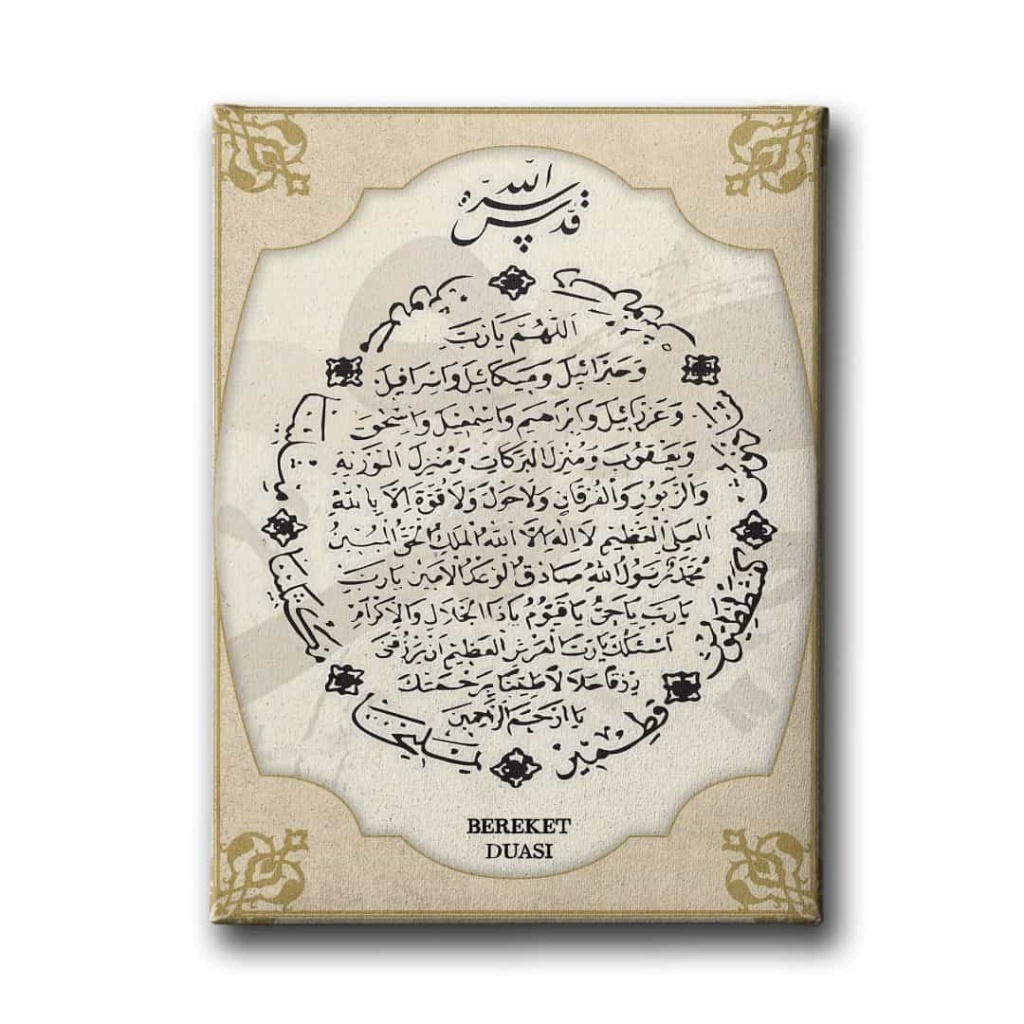 قدس الله سره
اللهم يا رب
وجبرائيل وميكائيل واسرافيل
وعزرائيل وابراهيم واسمعيل واسحق
ويعقوب ومنزل البركات ومنزل التورية
والزبور والفرقان ولا حول ولا قوة الا بالله
العلى العظيم لا اله الا الله الملك الحق المبين
محمد رسول الله صادق الوعد الامين يا رب
يا رب يا حى يا قيوم يا ذا الجلال والاكرام
اسئلك يا رب العرش العظيم ان ترزقنى
رزقا حلالا طيبا برحمتك
يا ارحم الراحمين
يمليخا
مكثلينا
مثلينا
مرنوش
كفشططيوش
قطمير
BEREKET
DUASI